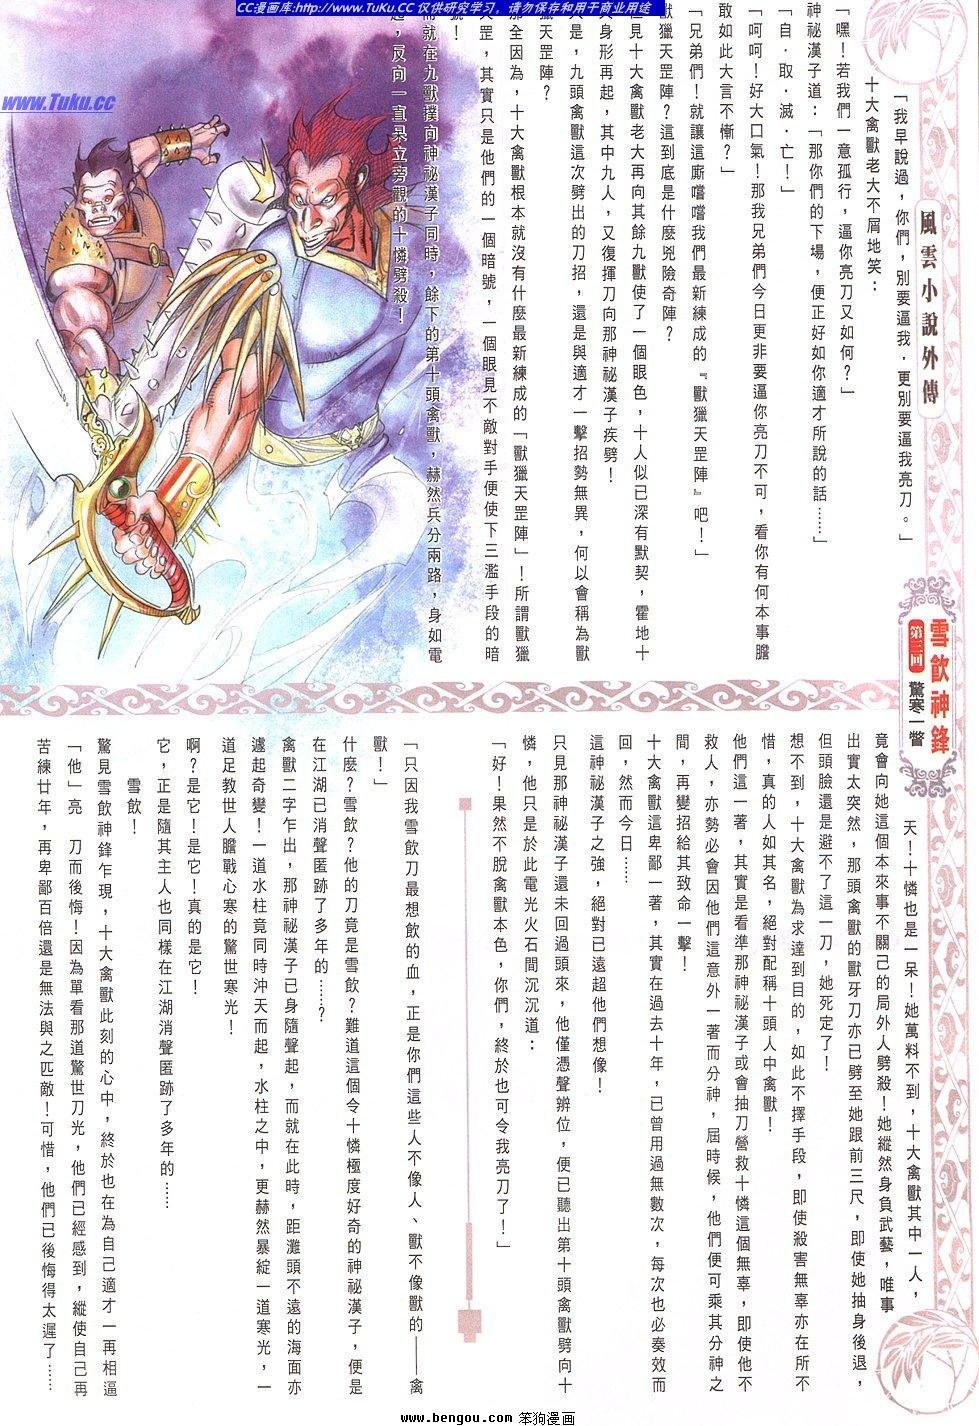 CC漫画库:http://www.TuKu.CC 仅供研究学习，请勿保存和用于商业用途
www.Tuku.cc
風雲小說外傳
雪飲神鋒
第三回 驚寒一瞥
「我早說過，你們，別要逼我．更別要逼我亮刀。」
十大禽獸老大不屑地笑：
「嘿！若我們一意孤行，逼你亮刀又如何？」
神祕漢子道：「那你們的下場，便正好如你適才所說的話……
「自．取．滅．亡！」
「呵呵！好大口氣！那我兄弟們今日更非要逼你亮刀不可，看你有何本事膽
敢如此大言不慚？」
「兄弟們！就讓這廝嚐嚐我們最新練成的『獸獵天罡陣』吧！」
獸獵天罡陣？這到底是什麼兇險奇陣？
見十大禽獸老大再向其餘九獸使了一個眼色，十人似已深有默契，霍地十
身形再起，其中九人，又復揮刀向那神祕漢子疾劈！
是，九頭禽獸這次劈出的刀招，還是與適才一擊招勢無異，何以會稱為獸
獵天罡陣？
那全因為，十大禽獸根本就沒有什麼最新練成的「獸獵天罡陣」！所謂獸獵
天罡，其實只是他們的一個暗號，一個眼見不敵對手便使下三濫手段的暗
號！
而就在九獸撲向神祕漢子同時，餘下的第十頭禽獸，赫然兵分兩路，身如電
起，反向一直呆立旁觀的十憐劈殺！
天！十憐也是一呆！她萬料不到，十大禽獸其中一人，
竟會向她這個本來事不關己的局外人劈殺！她縱然身負武藝，唯事
出實太突然，那頭禽獸的獸牙刀亦已劈至她跟前三尺，即使她抽身後退，
但頭臉還是避不了這一刀，她死定了！
想不到，十大禽獸為求達到目的，如此不擇手段，即使殺害無辜亦在所不
惜，真的人如其名，絕對配稱十頭人中禽獸！
他們這一著，其實是看準那神祕漢子或會抽刀營救十憐這個無辜，即使他不
救人，亦勢必會因他們這意外一著而分神，屆時候，他們便可乘其分神之
間，再變招給其致命一擊！
十大禽獸這卑鄙一著，其實在過去十年，已曾用過無數次，每次也必奏效而
回，然而今日……
這神祕漢子之強，絕對已遠超他們想像！
只見那神祕漢子還未回過頭來，他僅憑聲辨位，便已聽出第十頭禽獸劈向十
憐，他只是於此電光火石間沉沉道：
「好！果然不脫禽獸本色，你們，終於也可令我亮刀了！」
「只因我雪飲刀最想飲的血，正是你們這些人不像人、獸不像獸的——禽
獸！」
什麼？雪飲？他的刀竟是雪飲？難道這個令十憐極度好奇的神祕漢子，便是
在江湖已消聲匿跡了多年的……？
禽獸二字乍出，那神祕漢子已身隨聲起，而就在此時，距灘頭不遠的海面亦
遽起奇變！一道水柱竟同時沖天而起，水柱之中，更赫然暴綻一道寒光，一
道足教世人膽戰心寒的驚世寒光！
啊？是它！是它！真的是它！
它，正是隨其主人也同樣在江湖消聲匿跡了多年的……
雪飲！
驚見雪飲神鋒乍現，十大禽獸此刻的心中，終於也在為自己適才一再相逼
「他」亮　刀而後悔！因為單看那道驚世刀光，他們已經感到，縱使自己再
苦練廿年，再卑鄙百倍還是無法與之匹敵！可惜，他們已後悔得太遲了……
www.bengou.com 笨狗漫画